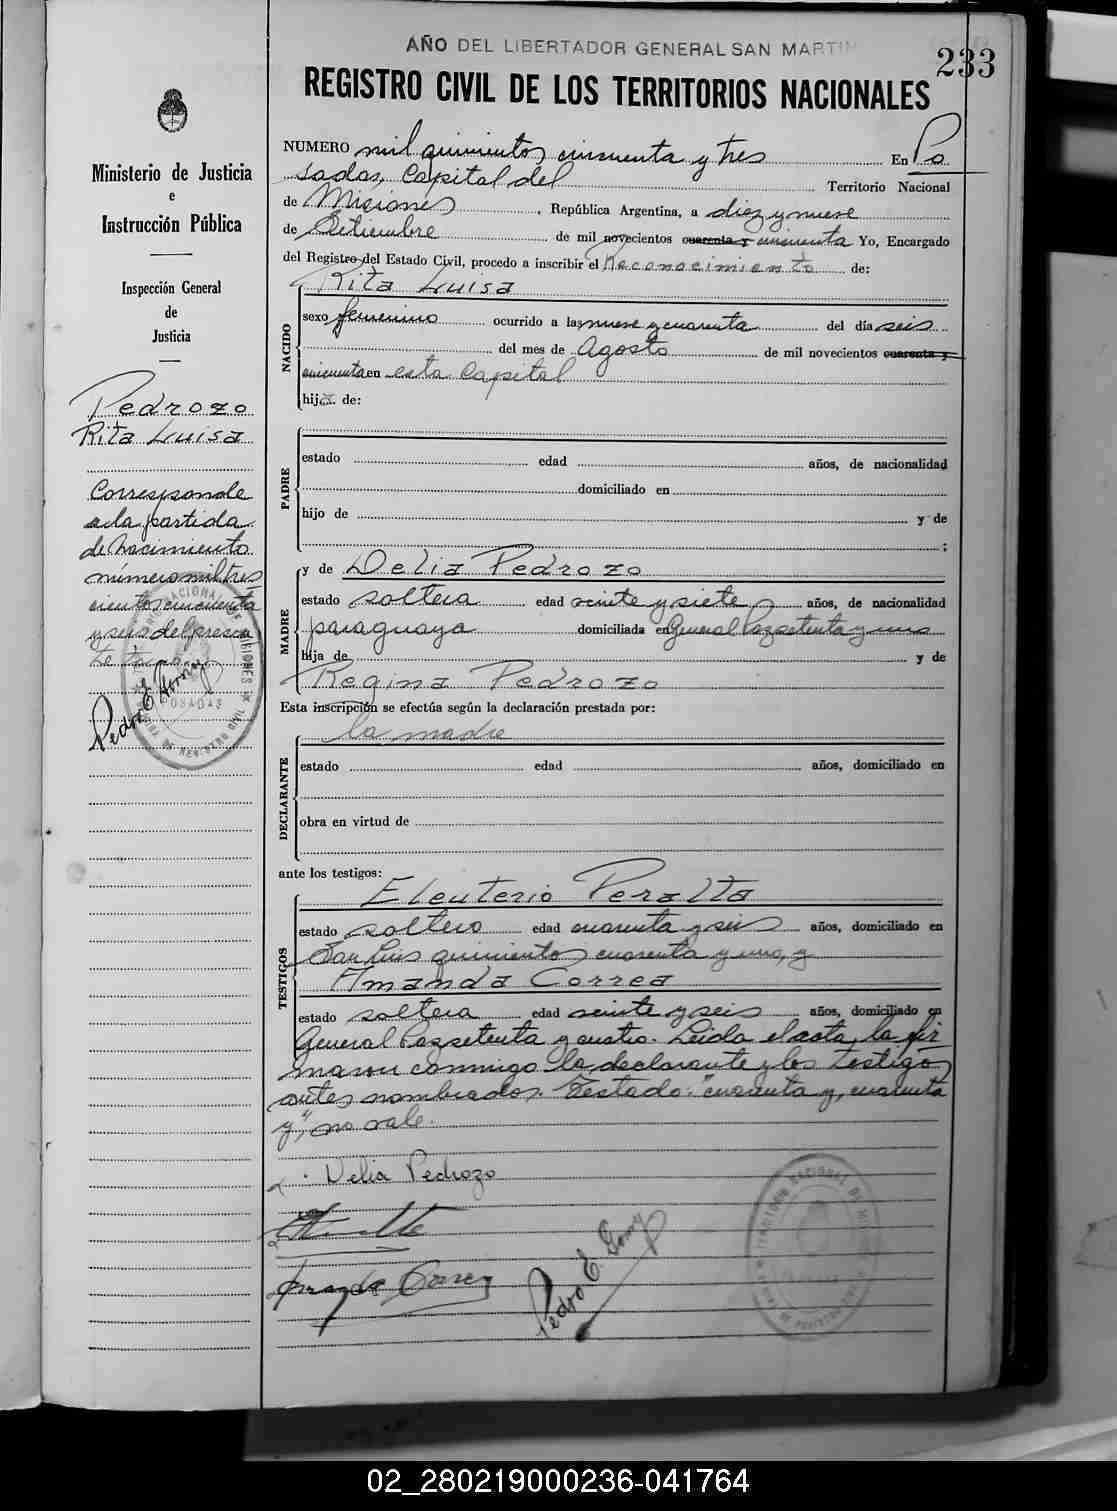 AÑO DEL LIBERTADOR GENERAL SAN MARTIN
233
REGISTRO CIVIL DE LOS TERRITORIOS NACIONALES
Ministerio de Justicia
e
Instrucción Pública
Inspección General
de
Justicia
Pedrozo
Rita Luisa
Corresponde
a la partida
de nacimiento
número mil tres
cientos cincuenta
y seis del presen
te
NUMERO mil quinientos cincuenta y tres En Po
sadas, Capital del Territorio Nacional
de Misiones, República Argentina, a diez y nueve
de Setiembre de mil novecientos cuarenta y cincuenta Yo, Encargado
del Registro del Estado Civil, procedo a inscribir el Reconocimiento de:
Rita Luisa
NACIDO
sexo femenino ocurrido a las nueve y cuarenta del día seis
del mes de Agosto de mil novecientos cuarenta y
cincuenta en esta Capital
hija de:
PADRE
estado edad años, de nacionalidad
domiciliado en
hijo de y de
;
MADRE
y de Delia Pedrozo
estado soltera edad veinte y siete años, de nacionalidad
paraguaya domiciliada en General Paz setenta y uno
hija de y de
Regina Pedrozo
Esta inscripción se efectúa según la declaración prestada por:
la madre
DECLARANTE
estado edad años, domiciliado en
obra en virtud de
ante los testigos:
TESTIGOS
Eleuterio Peralta
estado soltero edad cuarenta y seis años, domiciliado en
San Luis quinientos cuarenta y uno, y
Amanda Correa
estado soltera edad veinte y seis años, domiciliado en
General Paz setenta y cuatro. Leída el acta, la fir
maron conmigo la declarante y los testigos
antes nombrados. Testado: "cuarenta y, cuarenta
y", no vale.
Delia Pedrozo
Amanda Correa
Pedro E. Gomy
POSADAS
02_280219000236-041764